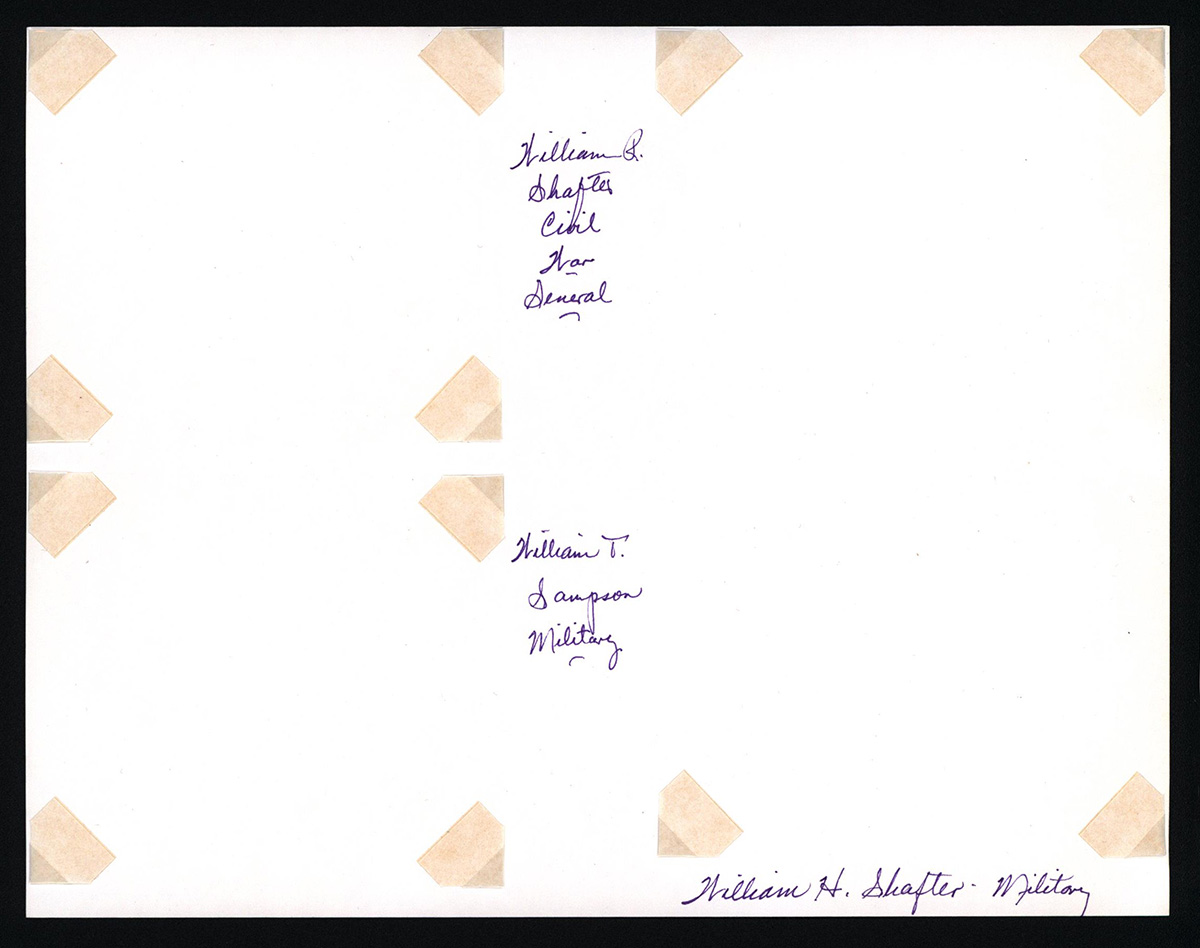 William R.
Shafter
Civil
War
General
William T.
Sampson
Military
William H. Shafter - Military